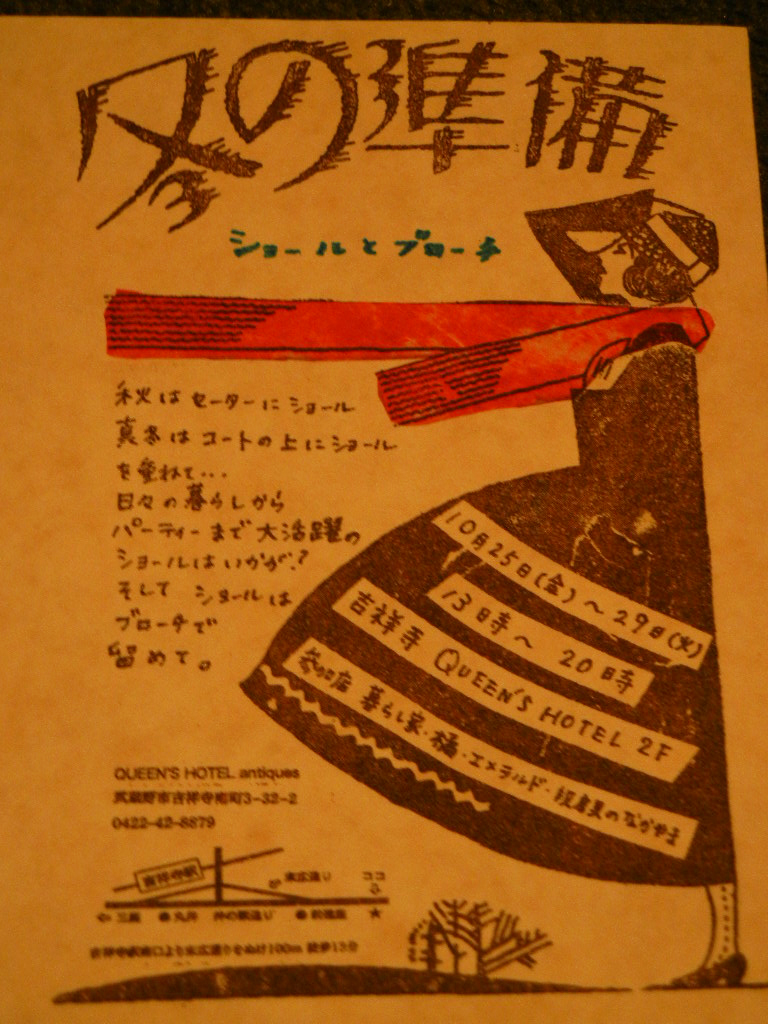 冬の準備
ショールとブローチ
秋はセーターにショール
真冬はコートの上にショール
を重ねて…
日々の暮らしから
パーティーまで大活躍の
ショールはいかが?
そして ショールは
ブローチで
留めて。
10月25日(金)〜29日(火)
13時〜20時
吉祥寺 QUEEN'S HOTEL 2F
参加店 暮らし家・橘・エメラルド・絞着具のなかやま
QUEEN'S HOTEL antiques
武蔵野市吉祥寺南町3-32-2
0422-42-8879
吉祥寺駅
末広通り
ココ
三鷹
丸井
井の頭通り
吉祥寺駅南口より末広通りをぬけ100m 徒歩13分